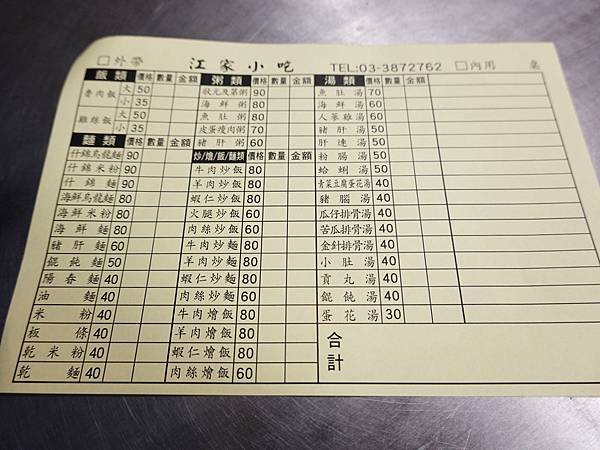 □外帶 江家小吃 TEL:03-3872762 □內用 桌
飯類 價格 數量 金額
魯肉飯 大 50
小 35
雞絲飯 大 50
小 35
麵類 價格 數量 金額
什錦烏龍麵 90
什錦米粉 90
什錦麵 90
海鮮烏龍麵 80
海鮮米粉 80
海鮮麵 80
豬肝麵 60
餛飩麵 50
陽春麵 40
油麵 40
米粉 40
板條 40
乾米粉 40
乾麵 40
粥類 價格 數量 金額
狀元及第粥 90
海鮮粥 80
魚肚粥 80
皮蛋瘦肉粥 70
豬肝粥 60
炒/燴/飯/麵類 價格 數量 金額
牛肉炒飯 80
羊肉炒飯 80
蝦仁炒飯 80
火腿炒飯 60
肉絲炒飯 60
牛肉炒麵 80
羊肉炒麵 80
蝦仁炒麵 80
肉絲炒麵 60
牛肉燴飯 80
羊肉燴飯 80
蝦仁燴飯 80
肉絲燴飯 60
湯類 價格 數量 金額
魚肚湯 70
海鮮湯 60
人蔘雞湯 60
豬肝湯 50
肝連湯 50
粉腸湯 50
蛤蜊湯 50
青菜豆腐蛋花湯 40
豬腦湯 40
瓜仔排骨湯 40
苦瓜排骨湯 40
金針排骨湯 40
小肚湯 40
貢丸湯 40
餛飩湯 40
蛋花湯 30
合計